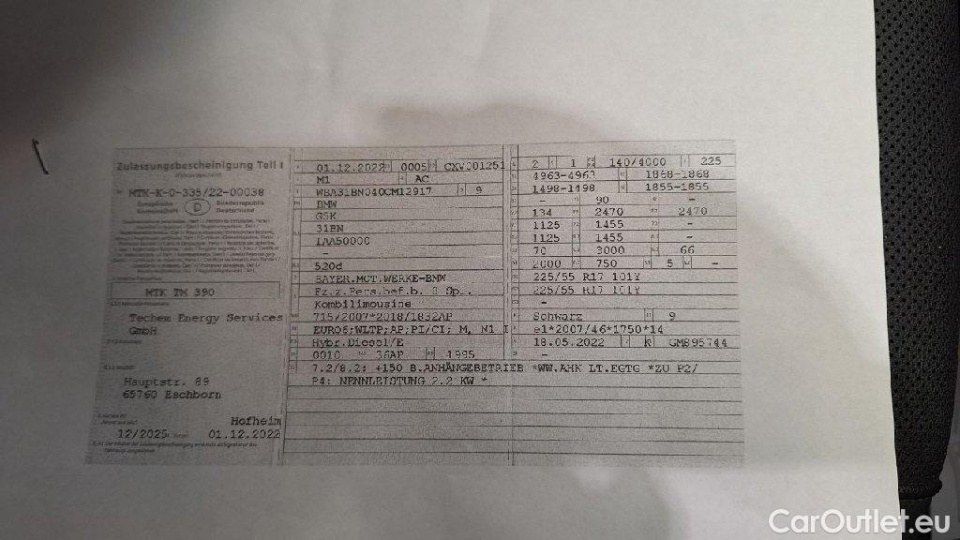 Zulassungsbescheinigung Teil I
MTK-K-0-335/22-00038
Europäische Gemeinschaft D Bundesrepublik Deutschland
MTK TM 390
Techem Energy Services
GmbH
Hauptstr. 89
65760 Eschborn
Hofheim
12/2025 01.12.2022
01.12.2022 0005 CXW001251
M1 AC
WBA31BN040CM12917 9
BMW
G5K
31BN
1AA50000
-
520d
BAYER.MOT.WERKE-BMW
Fz.z.Pers.bef.b. 8 Sp..
Kombilimousine
715/2007*2018/1832AP
EURO6;WLTP;AP;PI/CI; M, N1 I
Hybr.Diesel/E
0010 36AP 1995
7.2/8.2: +150 B.ANHÄNGEBETRIEB *WW.AHK LT.EGTG *ZU P2/
P4: NENNLEISTUNG 2.2 KW *
2 1 140/4000 225
4963-4963 1868-1868
1498-1498 1855-1855
- 90 - -
134 2470 2470
1125 1455 -
1125 1455 -
70 3000 66
2000 750 5 -
225/55 R17 101Y
225/55 R17 101Y
-
Schwarz 9
e1*2007/46*1750*14
18.05.2022 K GM895744
-
CarOutlet.eu